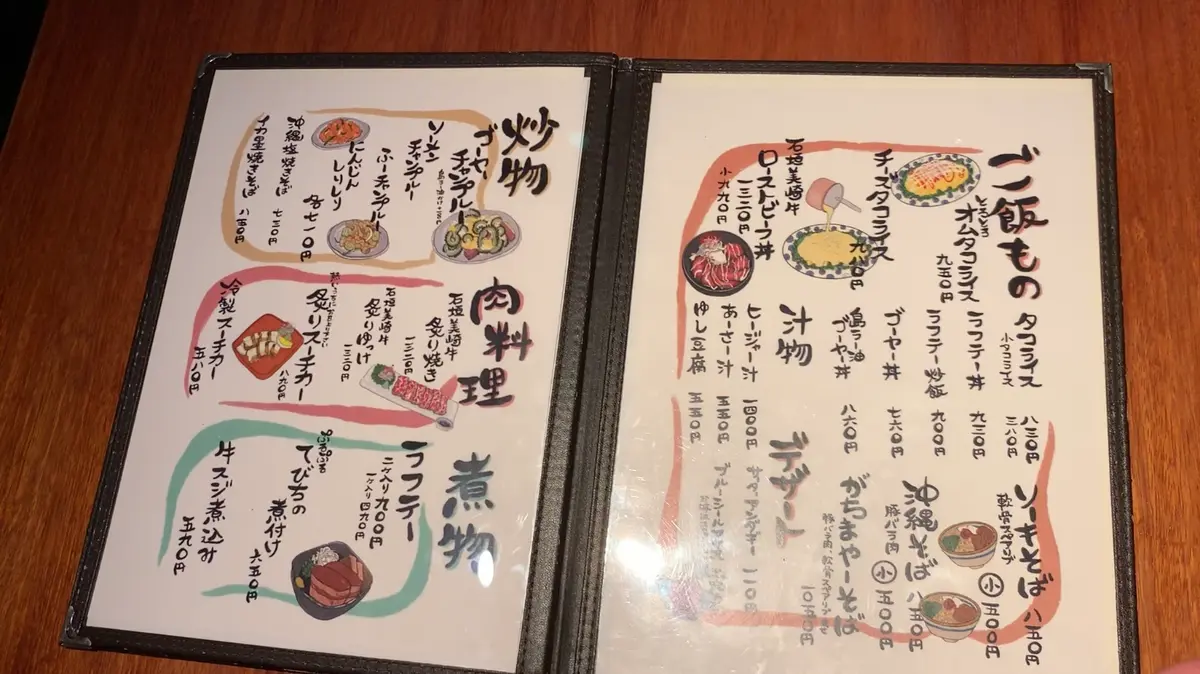 ご飯もの
タコライス 八三〇円
小タコライス 三八〇円
ラフテー丼 九三〇円
ラフテー炒飯 九〇〇円
ゴーヤー丼 七六〇円
島ラー油
ゴーヤー丼 八六〇円
とろとろ
オムタコライス
九五〇円
チーズタコライス
九八〇円
石垣美崎牛
ローストビーフ丼
一三二〇円
小 九九〇円
汁物
ヒージャー汁 一四〇〇円
あーさー汁 五五〇円
ゆし豆腐 五五〇円
ソーキそば 八五〇円
小 五〇〇円
沖縄そば 八五〇円
豚バラ肉 小 五〇〇円
がちまやーそば
一〇五〇円
デザート
サーターアンダギー 一一〇円
炒物
ゴーヤー
チャンプルー
ソーメン
チャンプルー
ふーチャンプルー
にんじん
しりしり
各七一〇円
沖縄塩焼きそば 七三〇円
イカ墨焼きそば 八五〇円
肉料理
石垣美崎牛
炙り焼き
一三二〇円
石垣美崎牛
炙りゆっけ
一三二〇円
炙りスーチカー
八九〇円
冷製スーチカー
五八〇円
煮物
ラフテー
二ヶ入り 九〇〇円
一ヶ入り 四九〇円
ぷるぷる
てびちの
煮付け
六五〇円
牛スジ煮込み
五九〇円